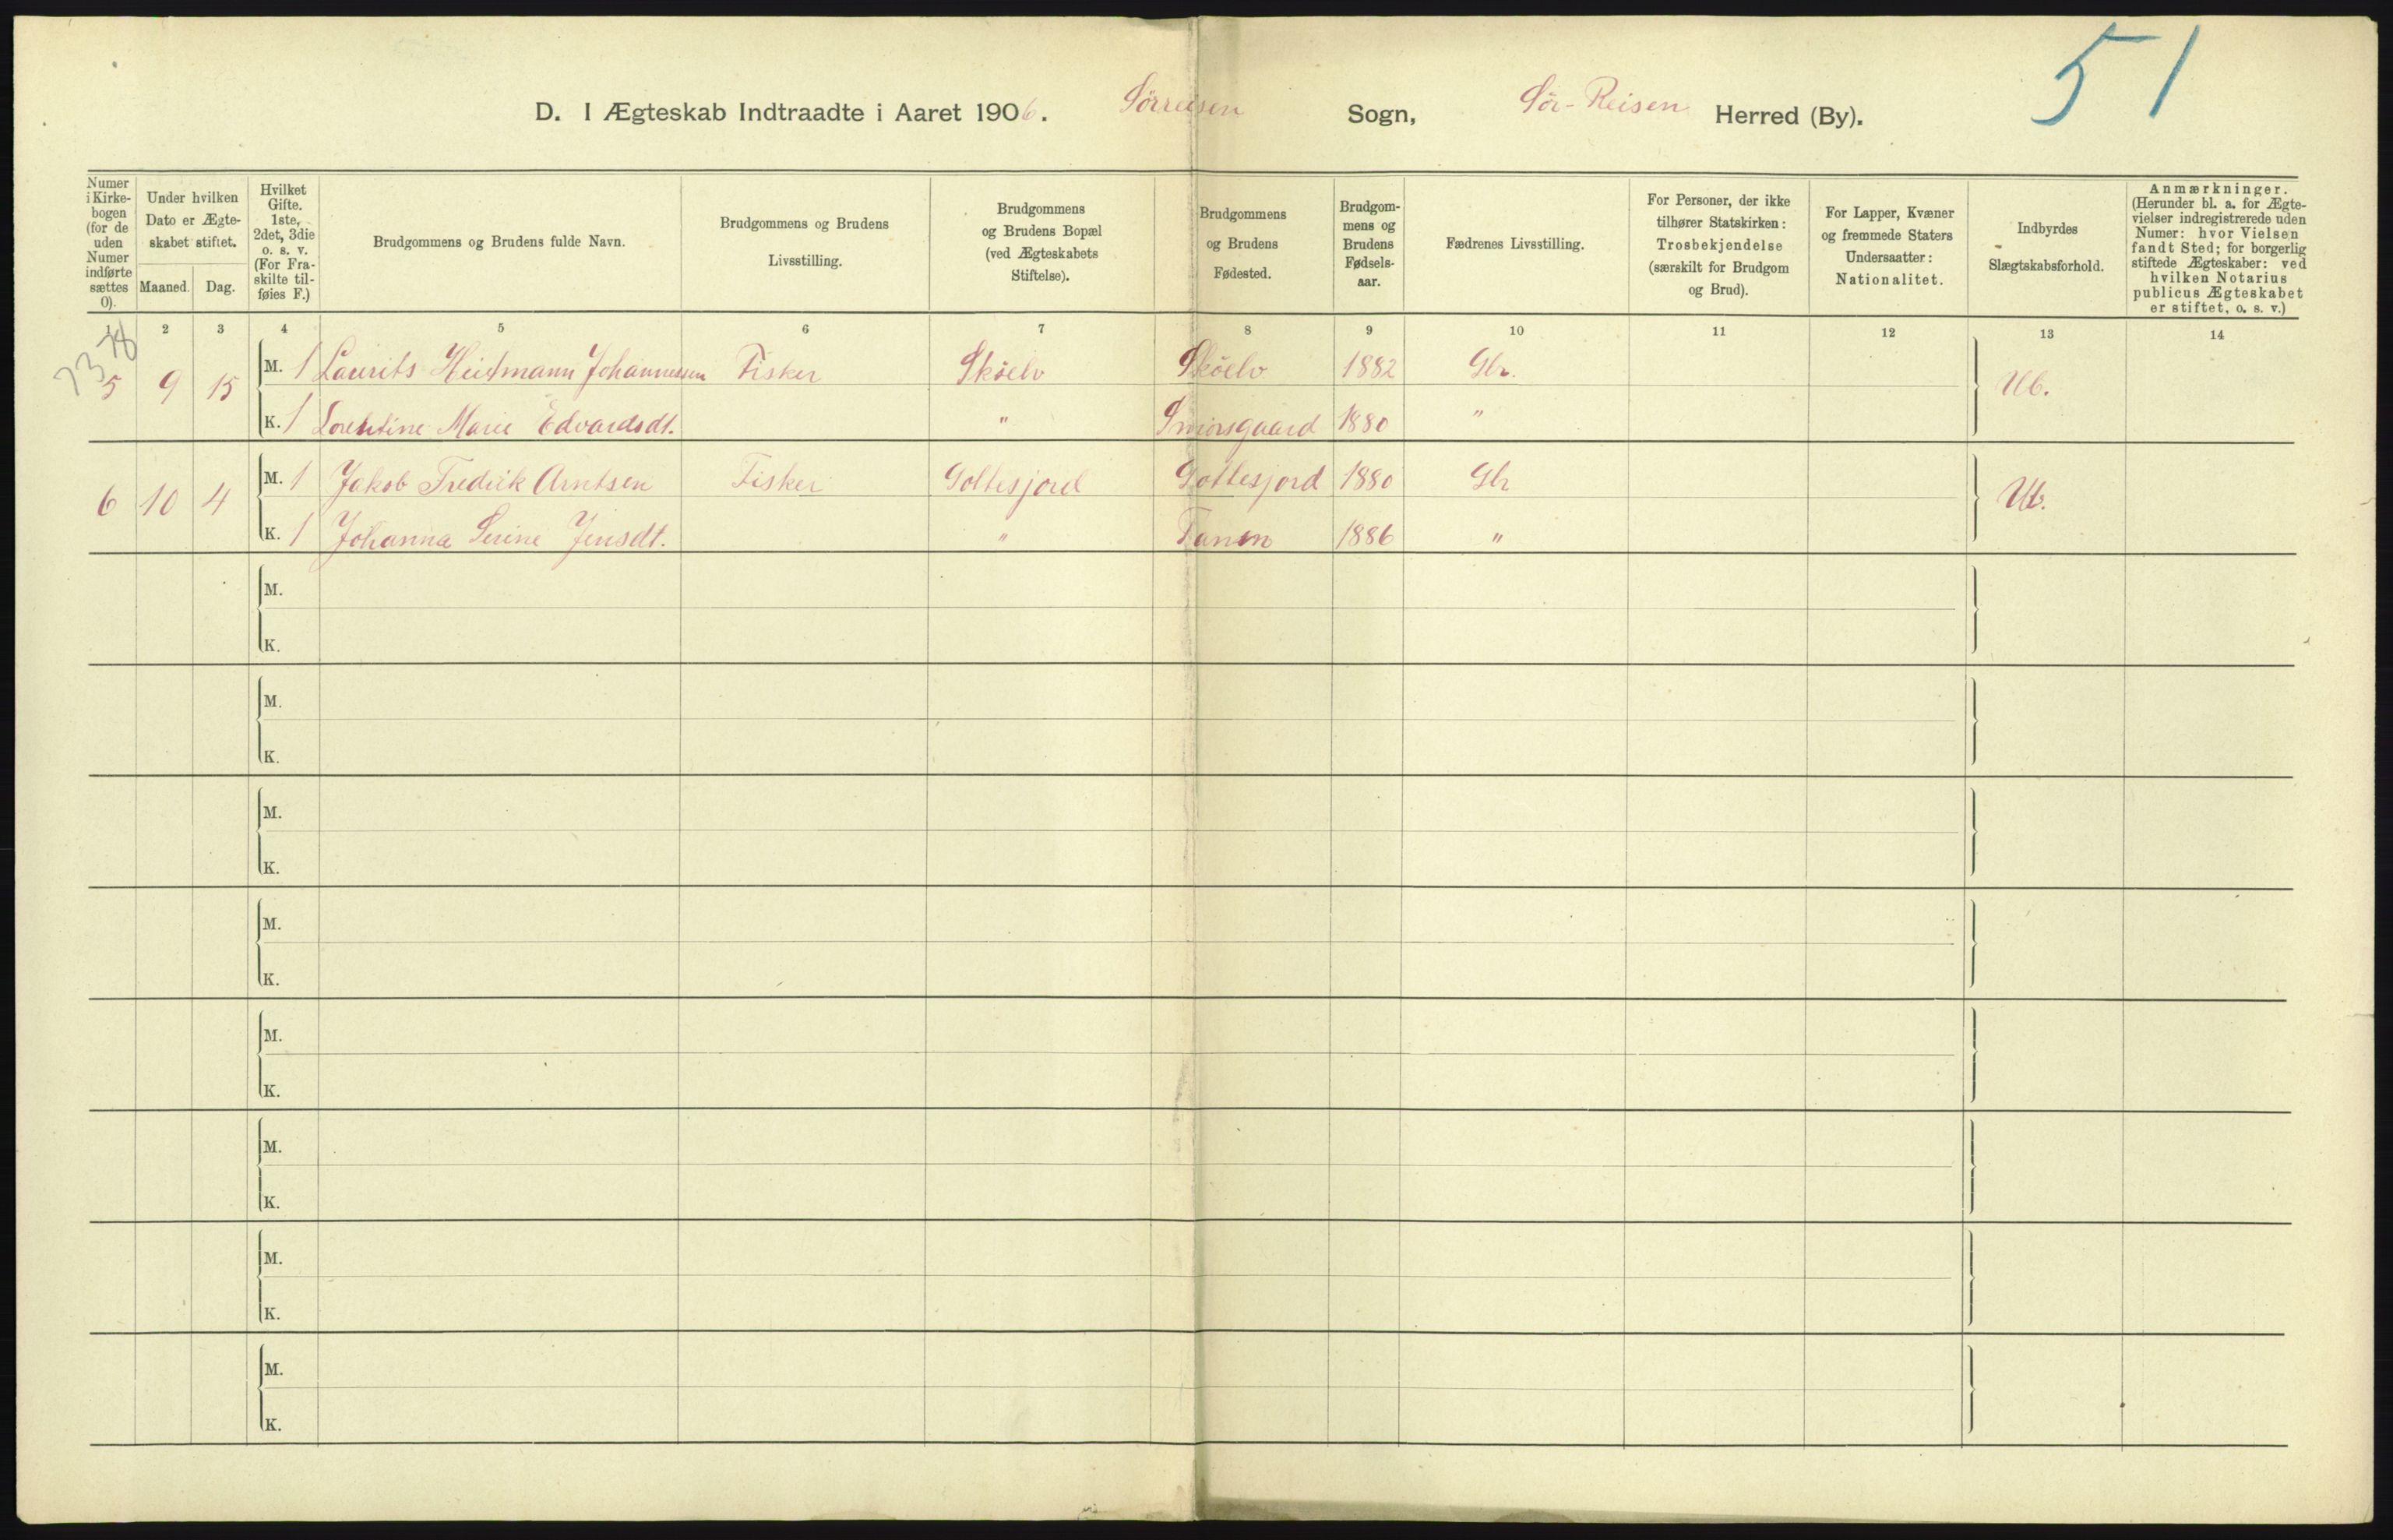 51
D. I Ægteskab Indtraadte i Aaret 1906. Sörreisen Sogn, Sör-Reisen Herred (By).
Numer i Kirke- bogen (for de uden Numer indførte sættes 0).
Under hvilken Dato er Ægte- skabet stiftet.
Maaned. Dag.
Hvilket Gifte. 1ste, 2det, 3die o. s. v. (For Fra- skilte til- føies F.)
Brudgommens og Brudens fulde Navn.
Brudgommens og Brudens Livsstilling.
Brudgommens og Brudens Bopæl (ved Ægteskabets Stiftelse).
Brudgommens og Brudens Fødested.
Brudgom- mens og Brudens Fødsels- aar.
Fædrenes Livsstilling.
For Personer, der ikke tilhører Statskirken: Trosbekjendelse (særskilt for Brudgom og Brud).
For Lapper, Kvæner og fremmede Staters Undersaatter: Nationalitet.
Indbyrdes Slægtskabsforhold.
Anmærkninger. (Herunder bl. a. for Ægte- vielser indregistrerede uden Numer: hvor Vielsen fandt Sted; for borgerlig stiftede Ægteskaber: ved hvilken Notarius publicus Ægteskabet er stiftet, o. s. v.)
1 2 3 4 5 6 7 8 9 10 11 12 13 14
5 9 15 M. 1 Laurits Heitmann Johannessen Fisker Sköelv Sköelv 1882 Gbr. Ub.
K. 1 Lorentine Marie Edvardsdt. " 1880 "
6 10 4 M. 1 Jakob Fredrik Arntsen Fisker Gottesjord Gottesjord 1880 Gbr Ub.
K. 1 Johanna Serine Jensdt. " 1886 "
M.
K.
M.
K.
M.
K.
M.
K.
M.
K.
M.
K.
M.
K.
M.
K.